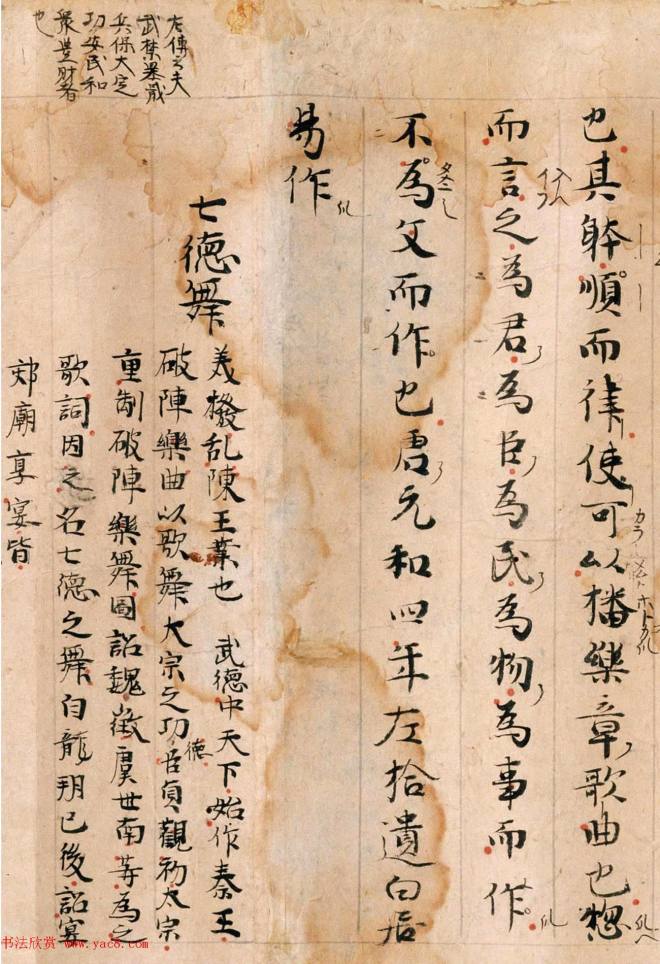 也其躰順而律使可以播樂章歌曲也惣
而言之為君為臣為民為物為事而作
不為文而作也唐元和四年左拾遺白居
易作
七德舞
美撥乱陳王業也 武德中天下始作秦王
破陣樂曲以歌舞太宗之功德貞觀初太宗
重制破陣樂舞圖詔魏徵虞世南等為之
歌詞因之名七德之舞自龍朔已後詔
郊廟享宴皆
左傳云夫
武禁暴戢
兵保大定
功安民和
衆豊財者
也
书法欣赏 www.yac8.com